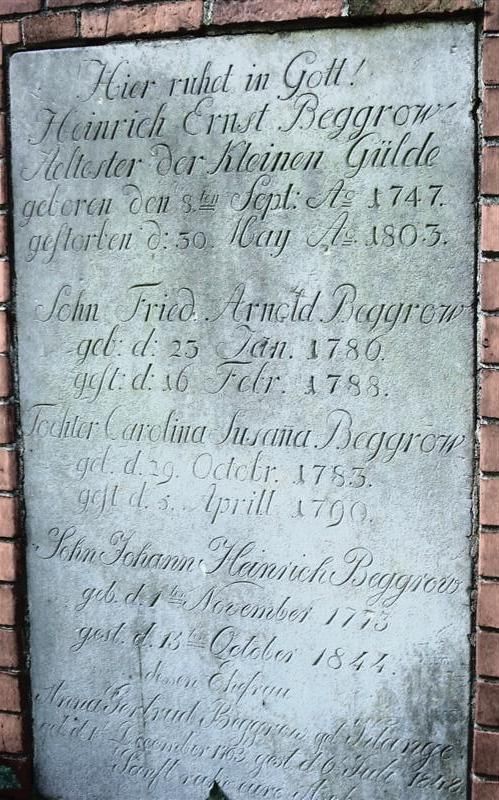 Hier ruhet in Gott!
Heinrich Ernst Beggrow
Aeltester der Kleinen Gülde
geboren den 8.ten Sept: Ao 1747.
gestorben d: 30. May Ao. 1803.
Sohn Fried. Arnold Beggrow
geb: d: 23 Jan. 1786.
gest: d: 16 Febr. 1788.
Tochter Carolina Susana Beggrow
geb. d. 29. Octobr. 1783.
gest d. 5. Aprill 1790.
Sohn Johann Heinrich Beggrow
geb. d. 1ten November 1773
gest. d. 13ten October 1844.
dessen Ehefrau
Anna Gertrud Beggrow geb
geb. d. December 1763 gest d. 6 Juli
Sanft ruhe